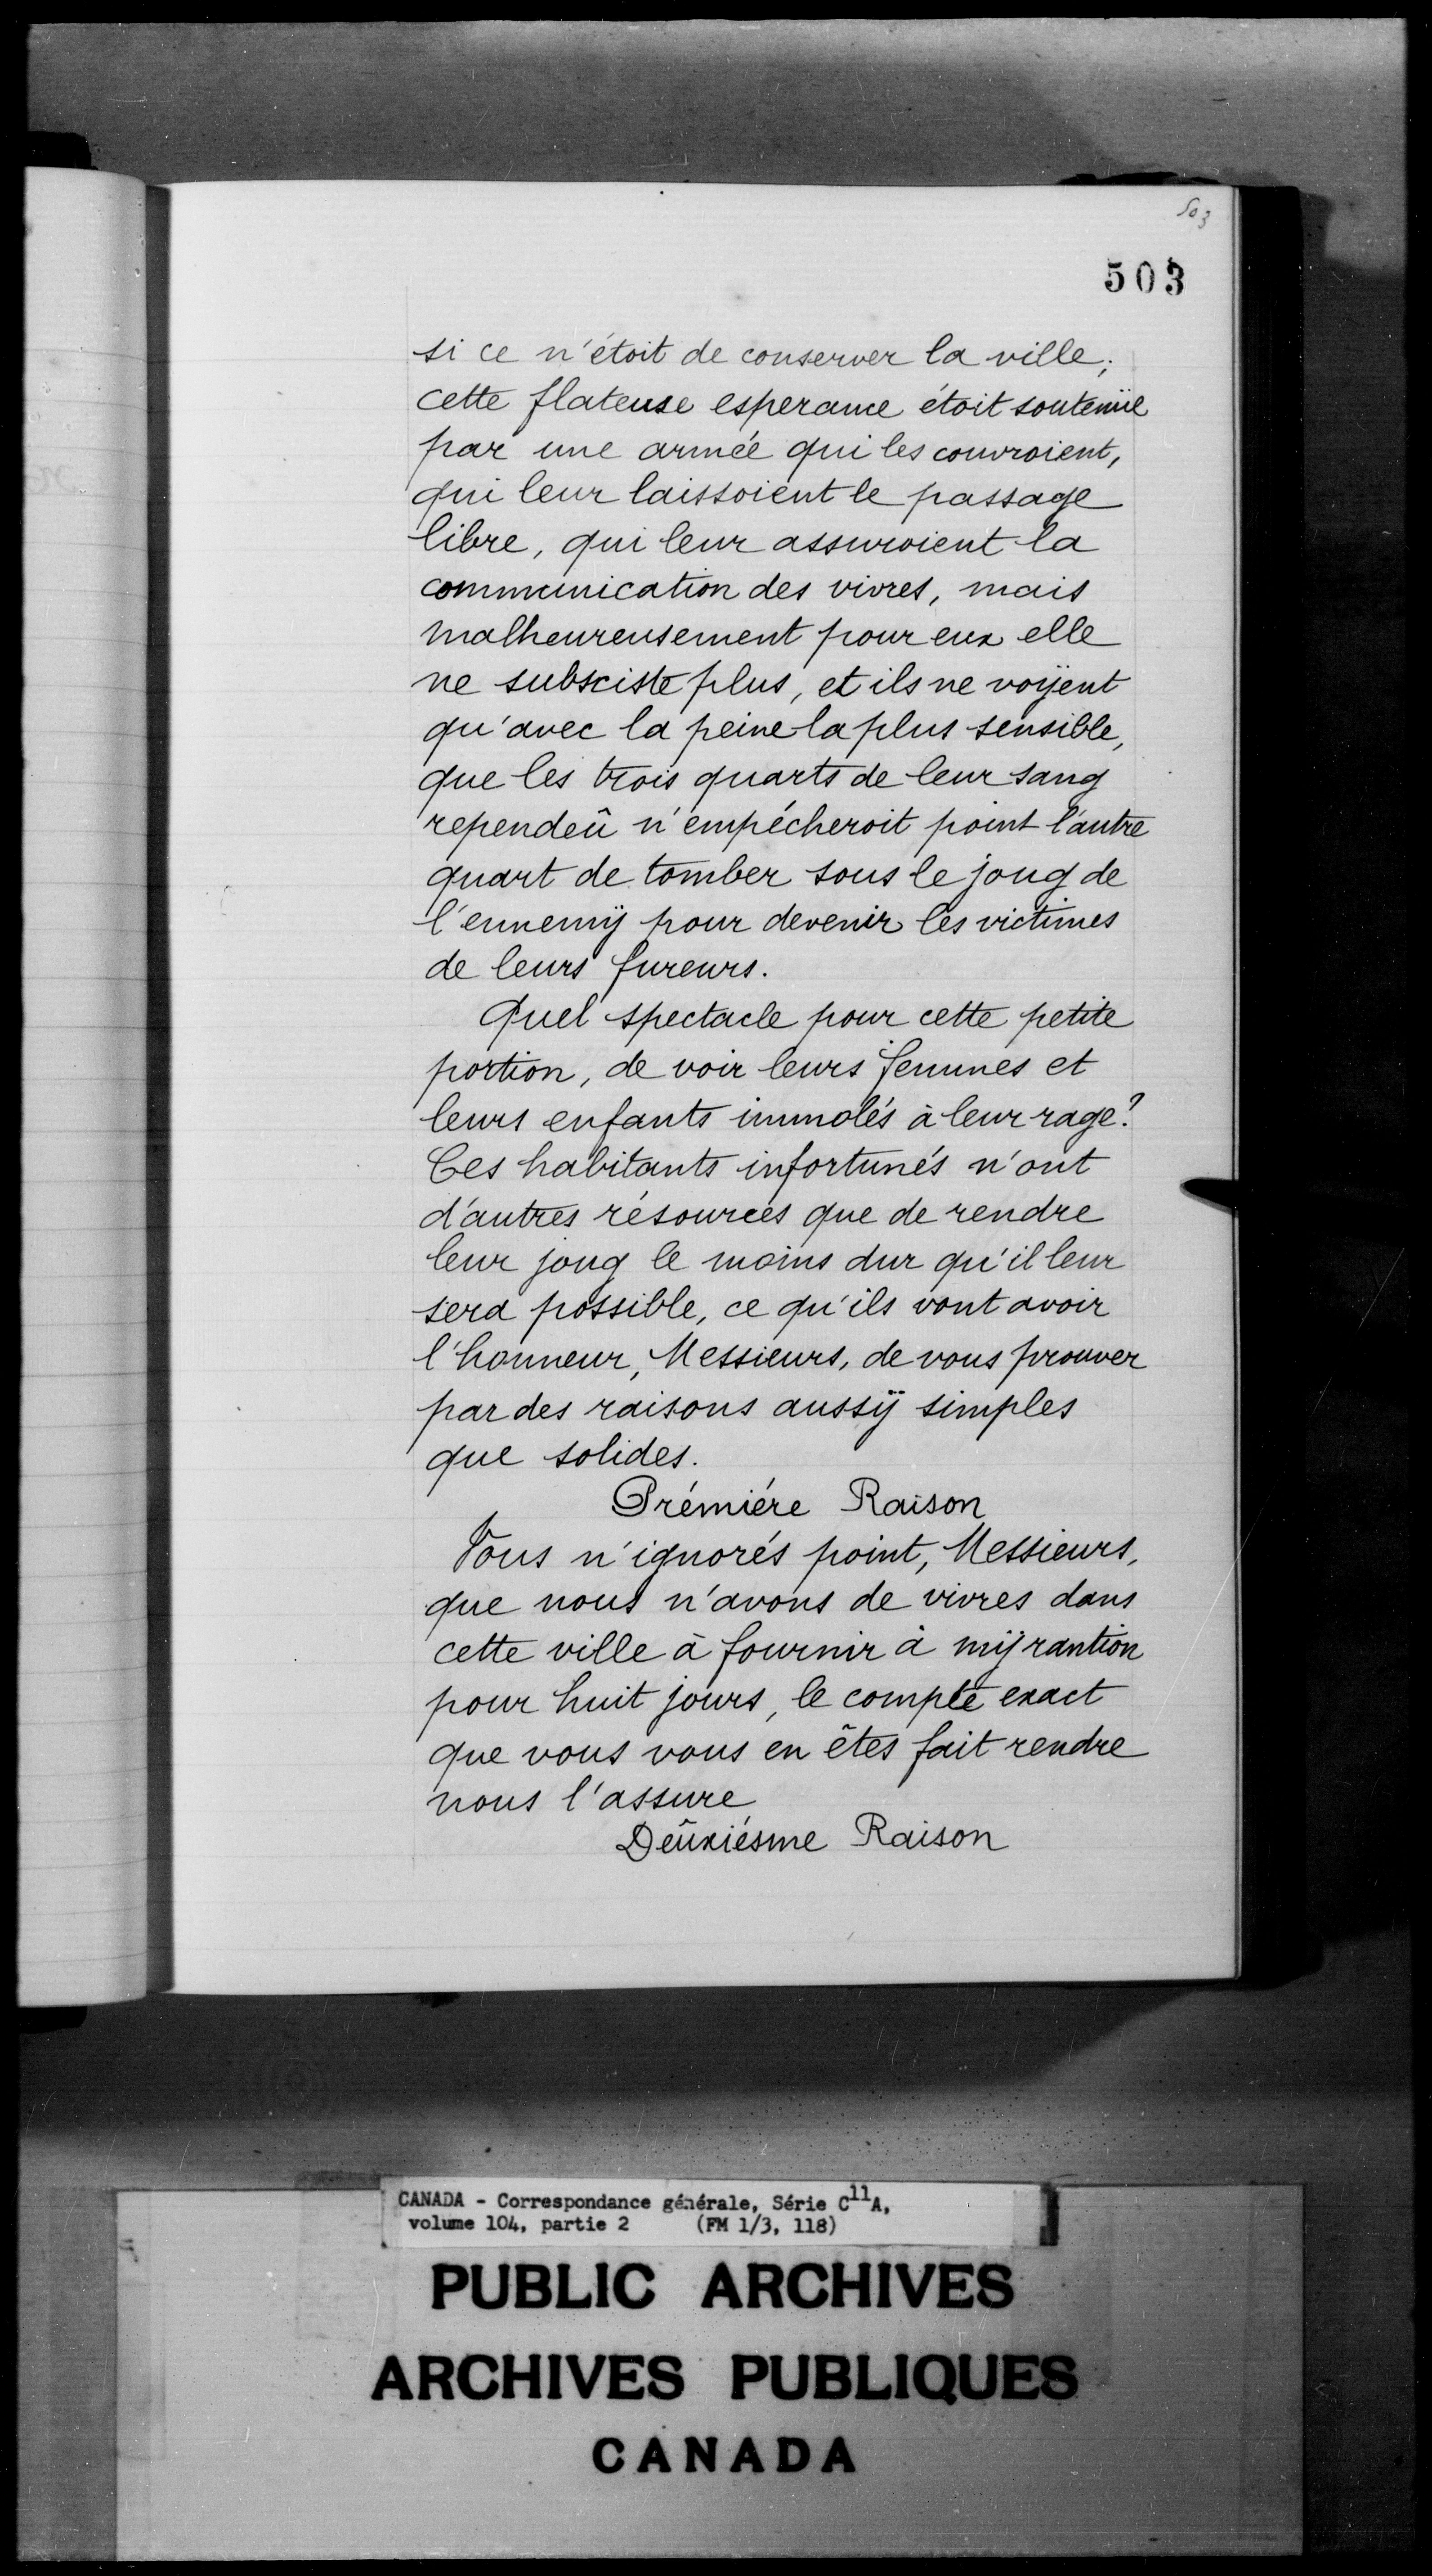 503
503
si ce n'étoit de conserver la ville;
cette flateuse esperance étoit soutenüe
par une armée qui les couvroient,
qui leur laissoient le passage
libre, qui leur assuroient la
communication des vivres, mais
malheureusement pour eux elle
ne subsciste plus, et ils ne voÿent
qu'avec la peine la plus sensible,
que les trois quarts de leur sang
rependeû n'empécheroit point l'autre
quart de tomber sous le joug de
l'ennemÿ pour devenir les victimes
de leurs fureurs.
Quel spectacle pour cette petite
portion, de voir leurs femmes et
leurs enfants immolés à leur rage?
Ces habitants infortunés n'ont
d'autres résources que de rendre
leur joug le moins dur qu'il leur
sera possible, ce qu'ils vont avoir
l'honneur, Messieurs, de vous prouver
par des raisons aussÿ simples
que solides.
Prémiére Raison
Vous n'ignorés point, Messieurs,
que nous n'avons de vivres dans
cette ville à fournir à mÿ rantion
pour huit jours, le compte exact
que vous vous en êtes fait rendre
nous l'assure
Deûxiésme Raison
CANADA - Correspondance générale, Série C11A,
volume 104, partie 2 (FM 1/3, 118)
PUBLIC ARCHIVES
ARCHIVES PUBLIQUES
CANADA